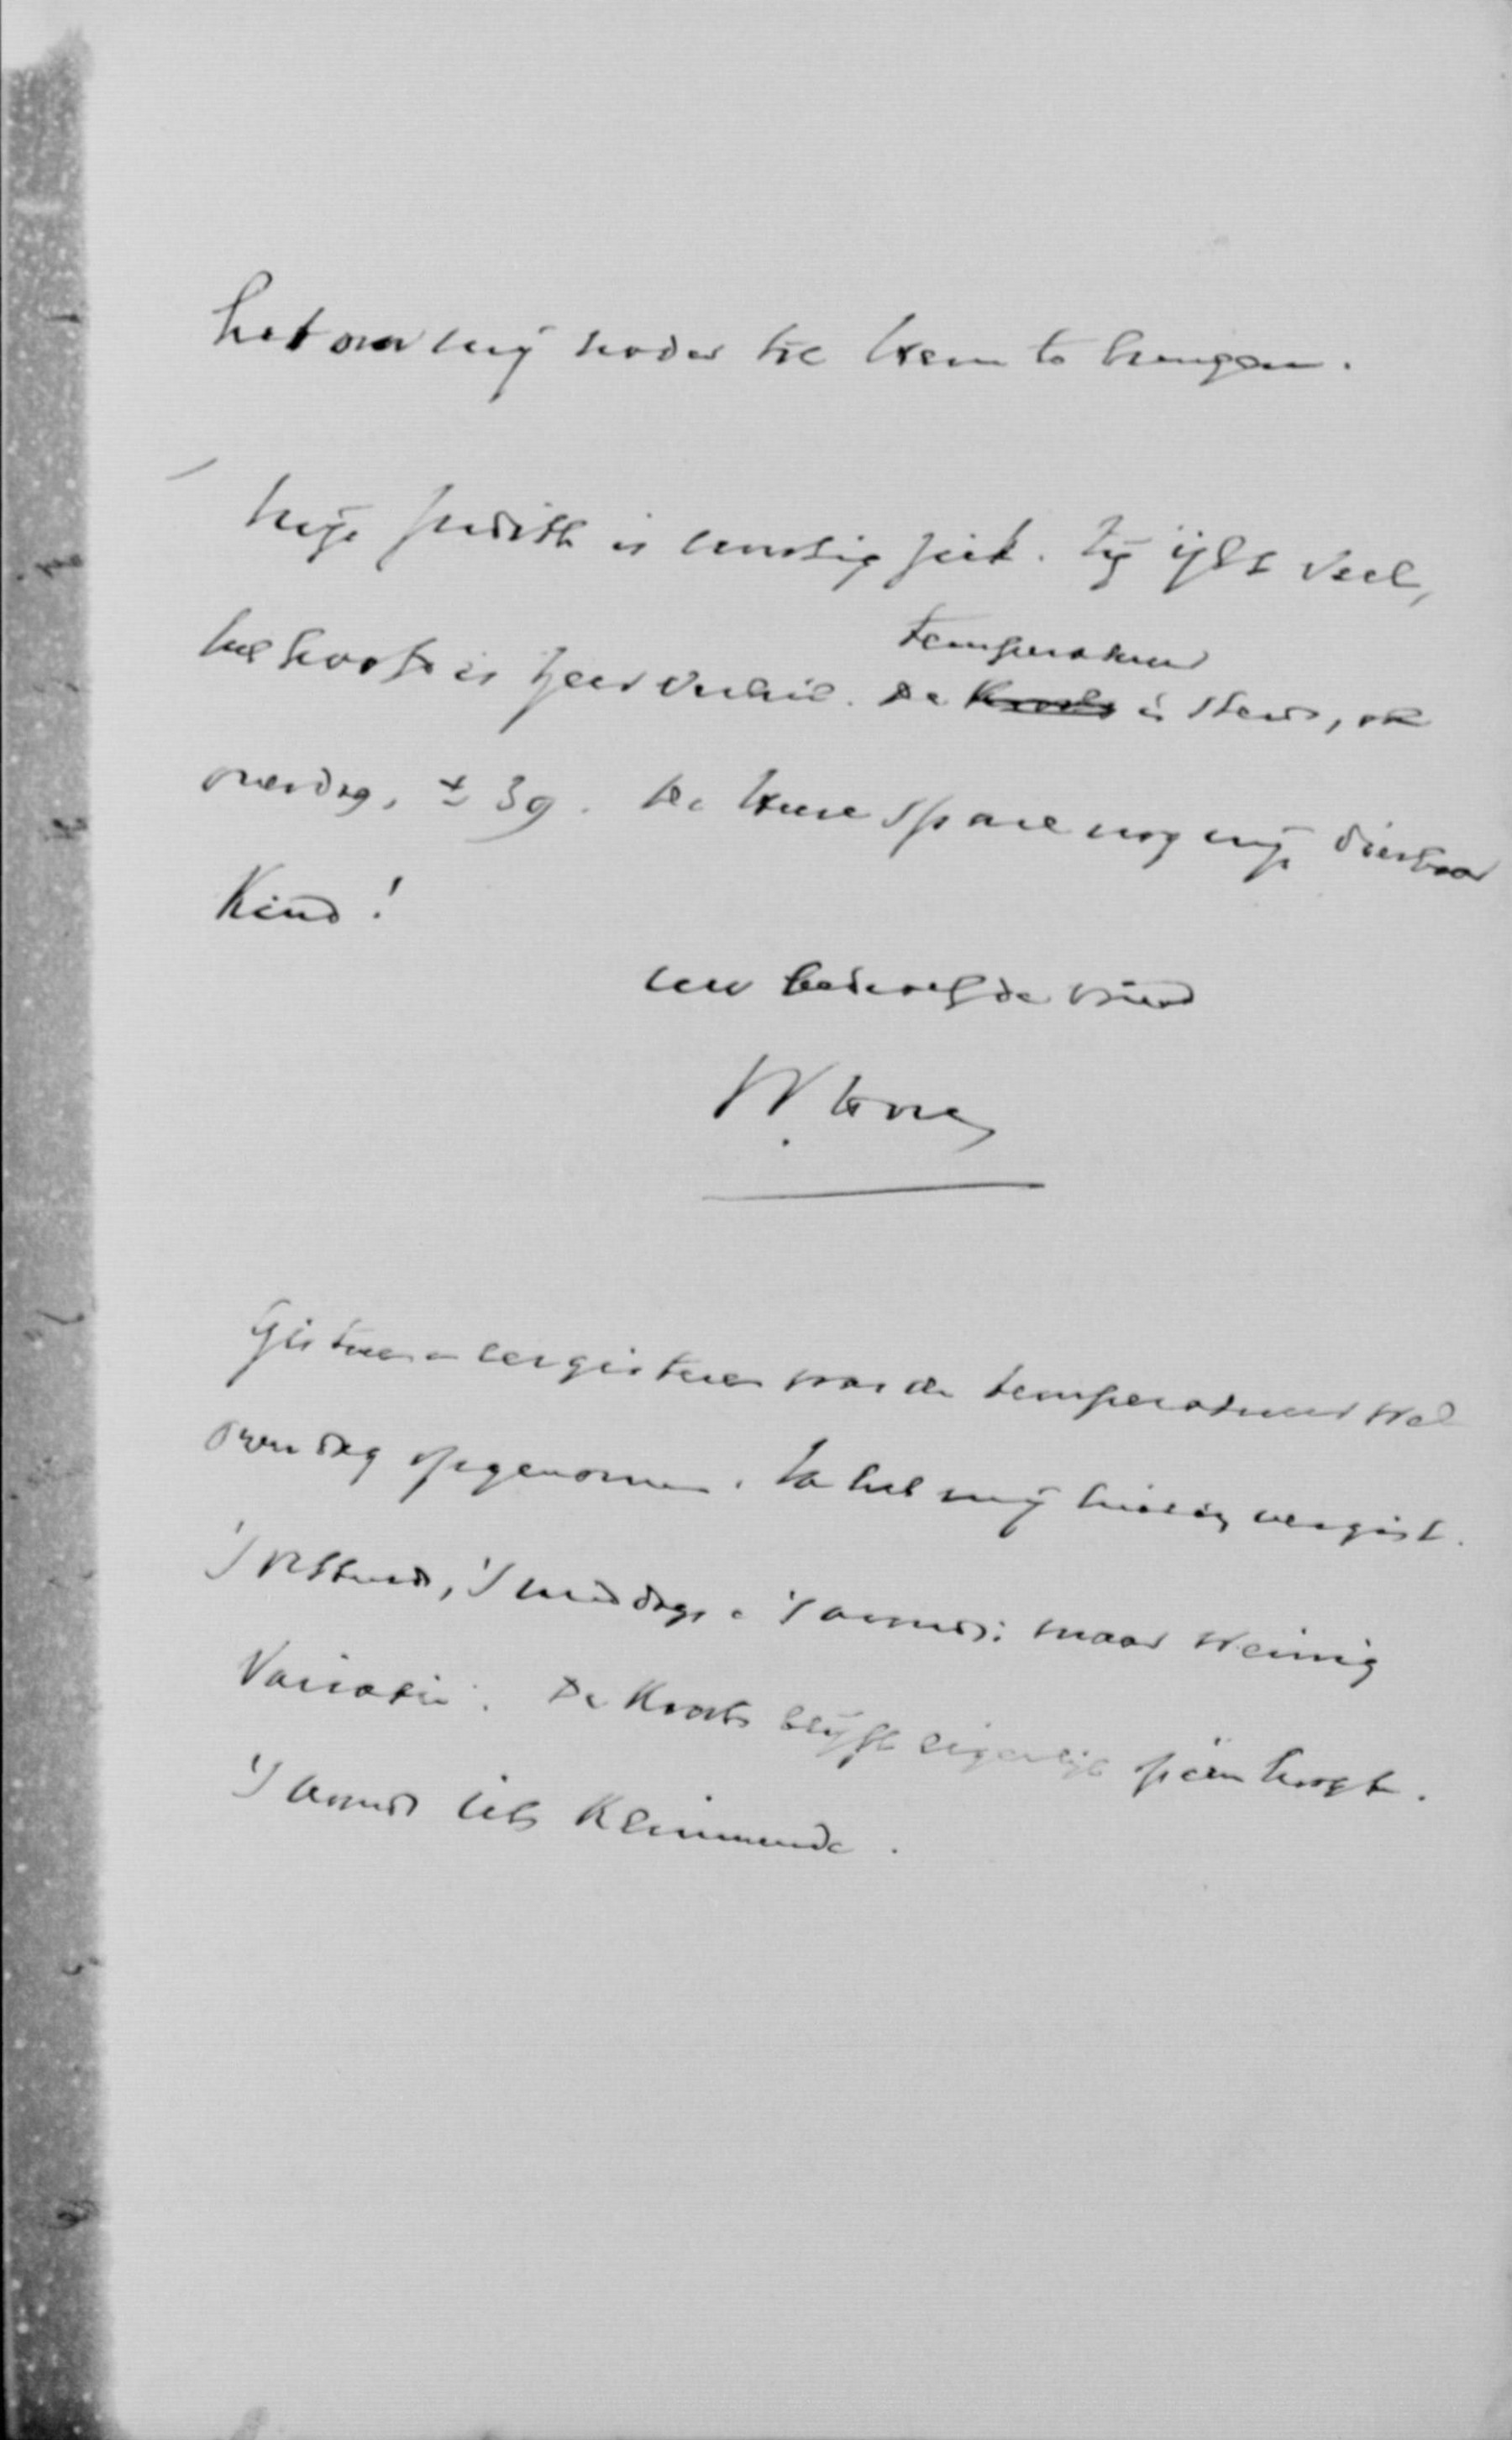 het om mij nader tot Hem te brengen.
Mijn Judith is ernstig ziek. Zij ijlt veel,
het hoofd is zeer verhit. De temperatuur is steeds, ook
overdag, ± 39. De Heere spare nog mijn dierbaar
Kind!
Uw bedroefde vriend
Gisteren en eergisteren was de temperatuur wel
overdag opgenomen. Ik heb mij hierin vergist.
'S ochtends, 'S middags en 'S avonds: maar weinig
Variatie. De Koorts blijft eigenlijk op één hoogte.
'S avonds iets Klimmende.